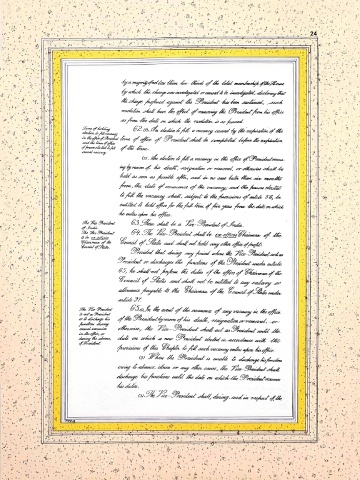 24
by a majority of not less than two thirds of the total membership of the House
by which the charge was investigated or caused to be investigated, declaring that
the charge preferred against the President has been sustained, such
resolution shall have the effect of removing the President from his office
as from the date on which the resolution is so passed.
Time of holding
election to fill vacancy
in the office of President
and the term of office
of person elected to fill
casual vacancy.
62. (1) An election to fill a vacancy caused by the expiration of the
term of office of President shall be completed before the expiration
of the term.
(2) An election to fill a vacancy in the office of President occurr-
ing by reason of his death, resignation or removal, or otherwise shall be
held as soon as possible after, and in no case later than six months
from, the date of occurrence of the vacancy; and the person elected
to fill the vacancy shall, subject to the provisions of article 56, be
entitled to hold office for the full term of five years from the date on which
he enters upon his office.
The Vice President
of India.
The Vice President
to be ex officio
Chairman of the
Council of States.
63. There shall be a Vice President of India.
64. The Vice President shall be ex officio Chairman of the
Council of States and shall not hold any other office of profit:
Provided that during any period when the Vice President acts as
President or discharges the functions of the President under article
65, he shall not perform the duties of the office of Chairman of the
Council of States and shall not be entitled to any salary or
allowance payable to the Chairman of the Council of States under
article 97.
The Vice President
to act as President
or to discharge his
functions during
casual vacancies
in the office, or
during the absence,
of President.
65. (1) In the event of the occurrence of any vacancy in the office
of the President by reason of his death, resignation or removal, or
otherwise, the Vice President shall act as President until the
date on which a new President elected in accordance with the
provisions of this Chapter to fill such vacancy enters upon his office.
(2) When the President is unable to discharge his functions
owing to absence, illness or any other cause, the Vice President shall
discharge his functions until the date on which the President resumes
his duties.
(3) The Vice President shall, during, and in respect of, the